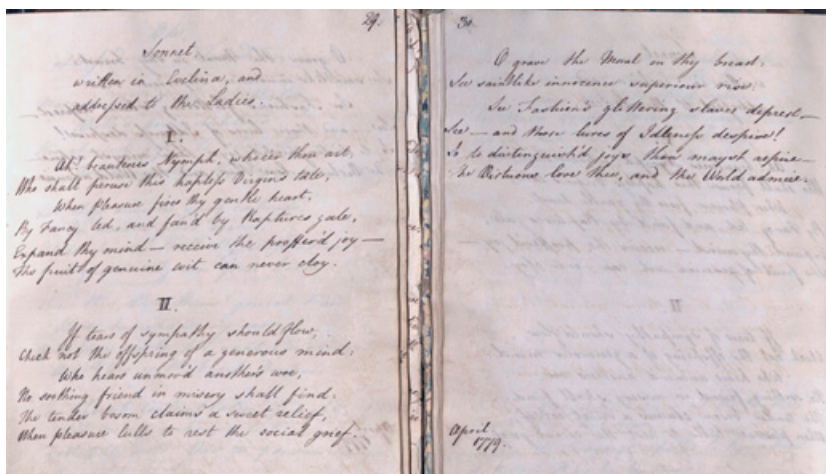 29.
Sonnet
written in Evelina, and
addressed to the Ladies.
I.
Ah! beauteous Nymph, whoe'er thou art,
Who shall peruse this hapless Virgins tale,
When pleasure fires thy gentle heart,
By Fancy led, and fan'd by Raptures gale,
Expand thy mind — receive the proffer'd joy —
The fruit of genuine wit can never cloy.
II.
If tears of sympathy should flow,
Check not the offspring of a generous mind:
Who hears unmov'd another's woe,
No soothing friend in misery shall find.
The tender bosom claims a sweet relief,
When pleasure lulls to rest the social grief.
30.
O grave the Moral on thy breast.
See saintlike innocence superiour rise.
See Fashion's glittering slaves deprest —
See — and those lures of Idleness despise!
So to distinguish'd joys thou mayst aspire —
The Virtuous love thee, and the World admire.
April
1779.